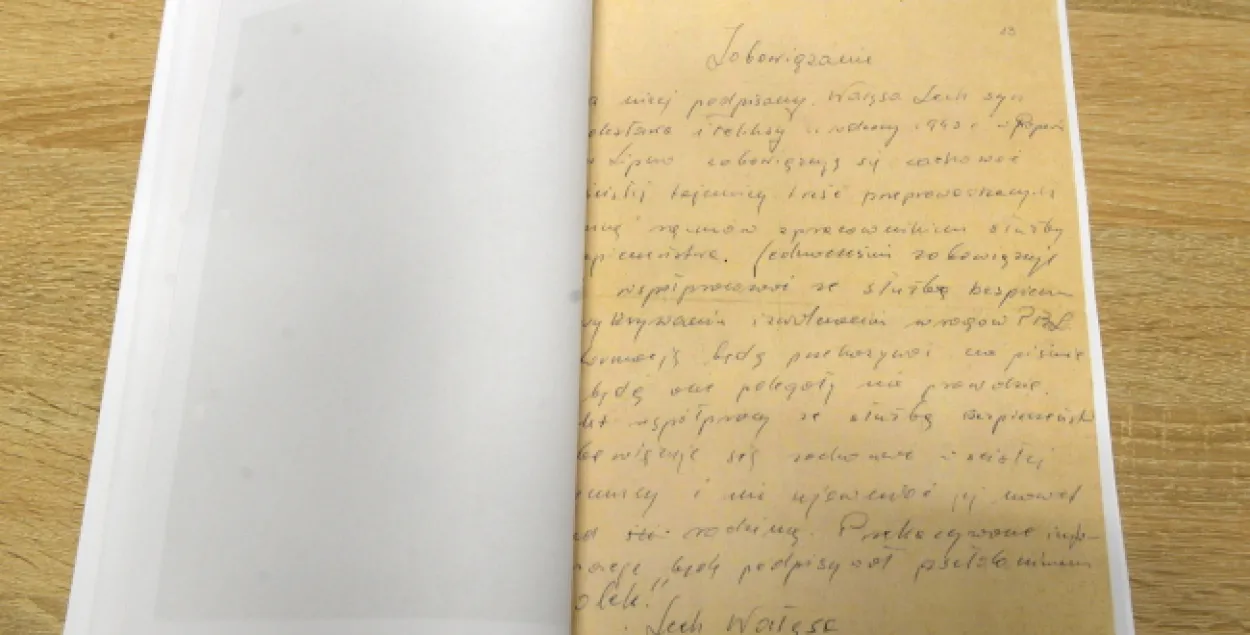 13
Zobowiązanie
a niżej podpisany Wałęsa Lech syn
olesława i Feliksy urodzony 1943 r w Popowi
w Lipno zobowiązuję się zachować
ścisłej tajemnicy treść przeprowadzanych
mną rozmów z pracownikiem służby
zpieczeństwa. Jednocześnie zobowiązuję
współpracować ze służbą bezpiecze
wykrywaniu i zwalczaniu wrogów PRL
formacje będę przekazywał na piśmie
będą one polegały na prawdzie.
akt współpracy ze służbą Bezpieczeńst
bowiązuje się zachować w ścisłej
emnicy i nie ujawniać jej nawet
ed rodziną. Przekazywane info-
macje będę podpisywał pseudonimem
olek."
Lech Wałęsa